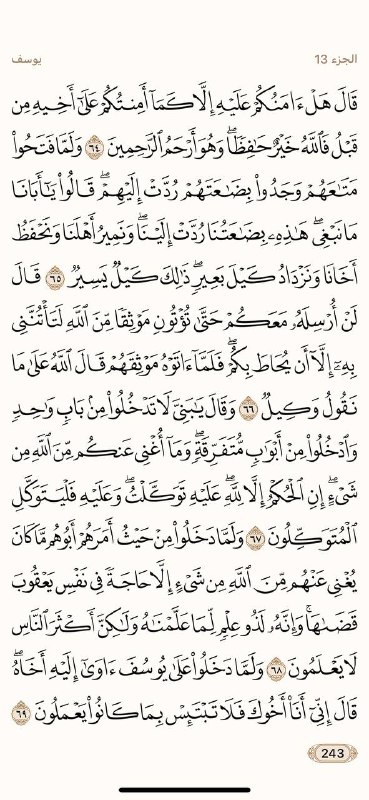 يوسف الجزء 13
قَالَ هَلْ ءَامَنُكُمْ عَلَيْهِ إِلَّا كَمَآ أَمِنتُكُمْ عَلَىٰٓ أَخِيهِ مِن
قَبْلُ فَٱللَّهُ خَيْرٌ حَٰفِظًاۖ وَهُوَ أَرْحَمُ ٱلرَّٰحِمِينَ ٦٤ وَلَمَّا فَتَحُوا۟
مَتَٰعَهُمْ وَجَدُوا۟ بِضَٰعَتَهُمْ رُدَّتْ إِلَيْهِمْۖ قَالُوا۟ يَٰٓأَبَانَا
مَا نَبْغِىۖ هَٰذِهِۦ بِضَٰعَتُنَا رُدَّتْ إِلَيْنَاۖ وَنَمِيرُ أَهْلَنَا وَنَحْفَظُ
أَخَانَا وَنَزْدَادُ كَيْلَ بَعِيرٍۖ ذَٰلِكَ كَيْلٌ يَسِيرٌ ٦٥ قَالَ
لَنْ أُرْسِلَهُۥ مَعَكُمْ حَتَّىٰ تُؤْتُونِ مَوْثِقًا مِّنَ ٱللَّهِ لَتَأْتُنَّنِى
بِهِۦٓ إِلَّآ أَن يُحَاطَ بِكُمْۖ فَلَمَّآ ءَاتَوْهُ مَوْثِقَهُمْ قَالَ ٱللَّهُ عَلَىٰ مَا
نَقُولُ وَكِيلٌ ٦٦ وَقَالَ يَٰبَنِىَّ لَا تَدْخُلُوا۟ مِنۢ بَابٍ وَٰحِدٍ
وَٱدْخُلُوا۟ مِنْ أَبْوَٰبٍ مُّتَفَرِّقَةٍۖ وَمَآ أُغْنِى عَنكُم مِّنَ ٱللَّهِ مِن
شَىْءٍۖ إِنِ ٱلْحُكْمُ إِلَّا لِلَّهِۖ عَلَيْهِ تَوَكَّلْتُۖ وَعَلَيْهِ فَلْيَتَوَكَّلِ
ٱلْمُتَوَكِّلُونَ ٦٧ وَلَمَّا دَخَلُوا۟ مِنْ حَيْثُ أَمَرَهُمْ أَبُوهُم مَّا كَانَ
يُغْنِى عَنْهُم مِّنَ ٱللَّهِ مِن شَىْءٍ إِلَّا حَاجَةً فِى نَفْسِ يَعْقُوبَ
قَضَىٰهَاۚ وَإِنَّهُۥ لَذُو عِلْمٍ لِّمَا عَلَّمْنَٰهُ وَلَٰكِنَّ أَكْثَرَ ٱلنَّاسِ
لَا يَعْلَمُونَ ٦٨ وَلَمَّا دَخَلُوا۟ عَلَىٰ يُوسُفَ ءَاوَىٰٓ إِلَيْهِ أَخَاهُۖ
قَالَ إِنِّىٓ أَنَا۠ أَخُوكَ فَلَا تَبْتَئِسْ بِمَا كَانُوا۟ يَعْمَلُونَ ٦٩
243